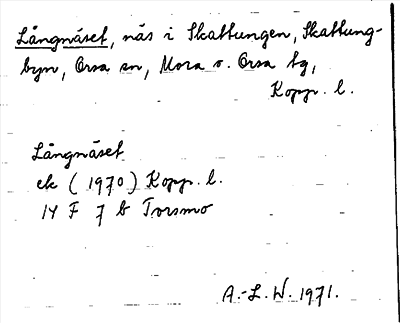 Långnäset, näs i Skattungen, Skattung-
byn, Orsa sn, Mora o. Orsa tg,
Kopp. l.
Långnäset
ek (1970) Kopp. l.
14 F 7 b Torsmo
A.-L. W. 1971.